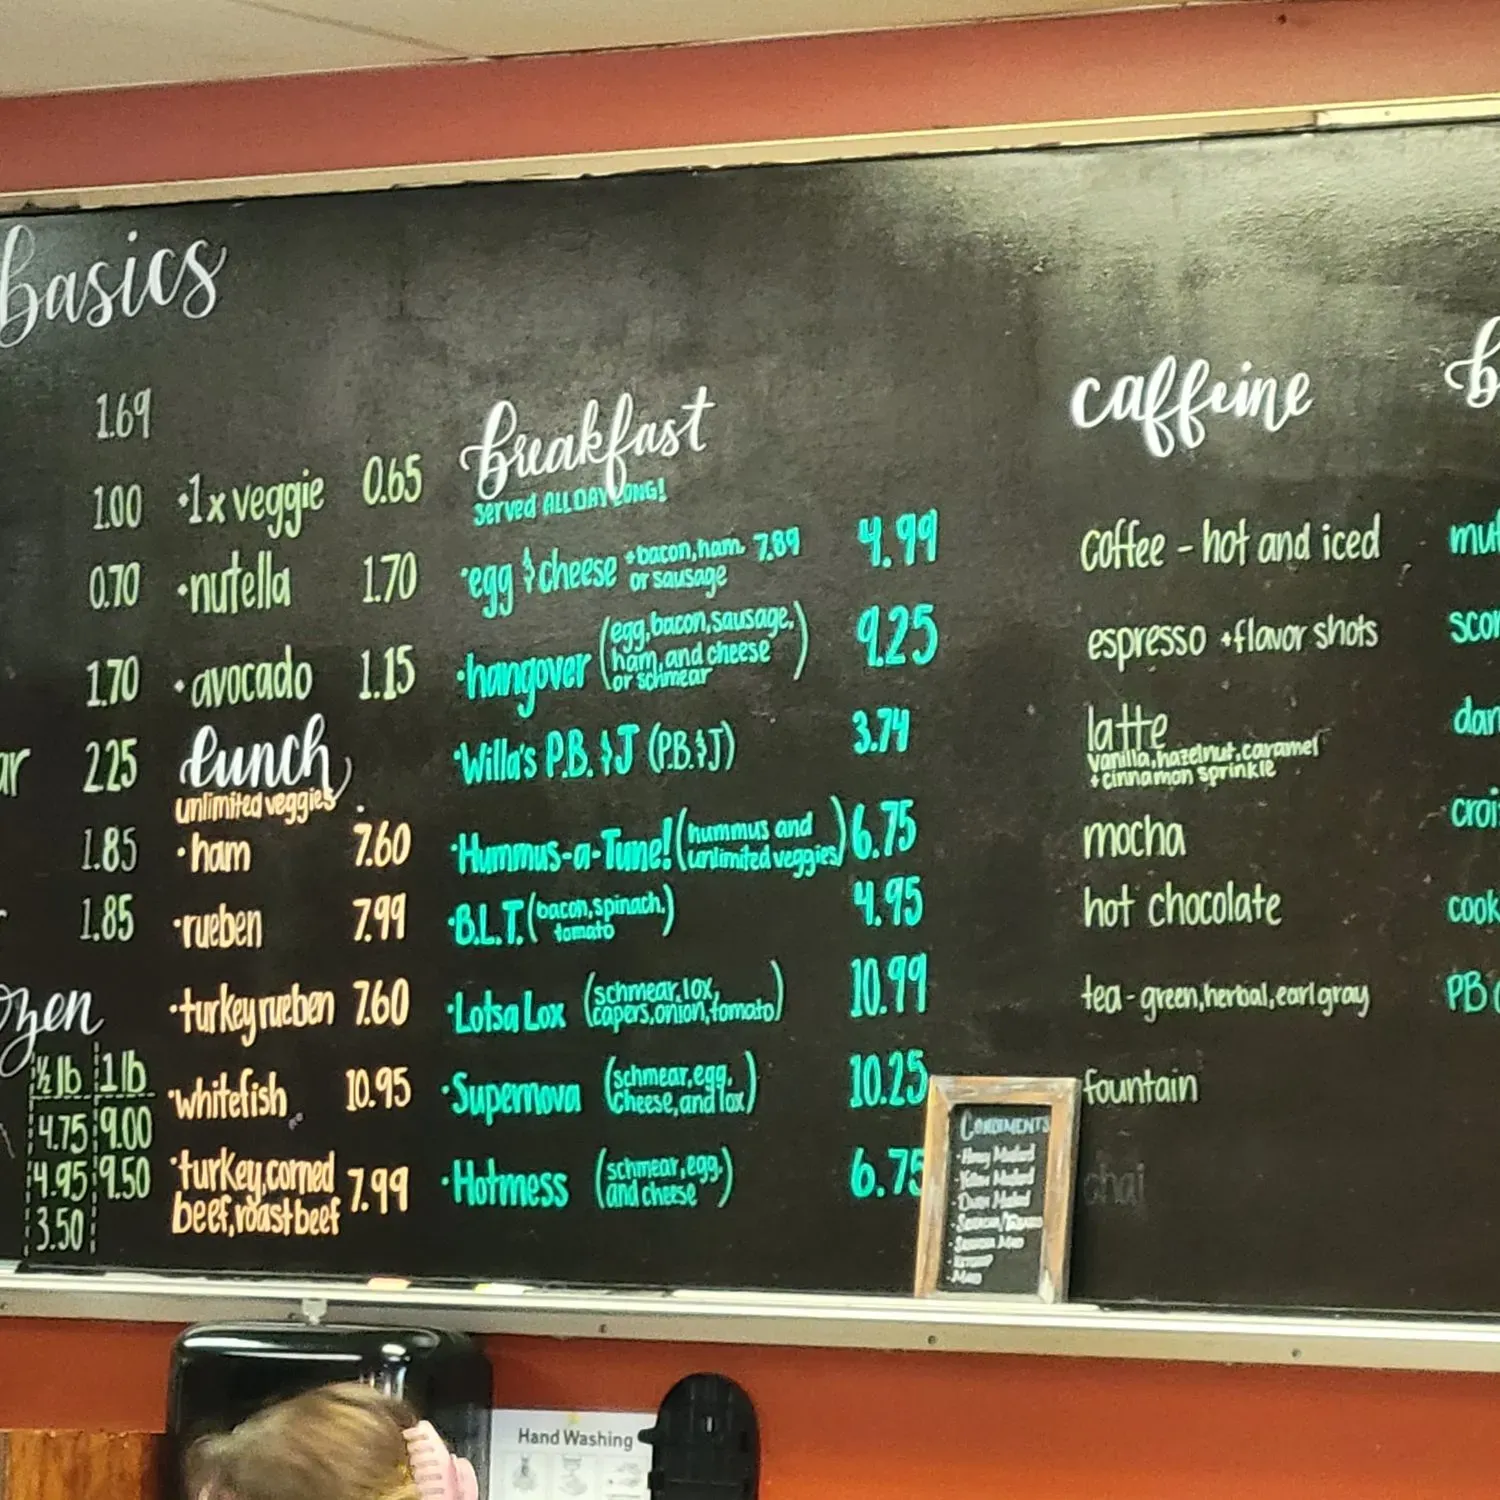 basics
1.69
1.00
0.70
1.70
ar 2.25
1.85
1.85
ozen
½ lb 1 lb
4.75 9.00
4.95 9.50
3.50
·1 x veggie 0.65
·nutella 1.70
·avocado 1.15
lunch
unlimited veggies
·ham 7.60
·rueben 7.99
·turkey rueben 7.60
·whitefish 10.95
·turkey, corned
beef, roast beef 7.99
breakfast
served ALL DAY LONG!
·egg & cheese +bacon, ham, 7.89 4.99
or sausage
·hangover (egg, bacon, sausage, 9.25
ham, and cheese
or schmear)
·Willa's P.B. & J (P.B. & J) 3.74
·Hummus-a-Tune! (hummus and 6.75
unlimited veggies)
·B.L.T. (bacon, spinach, 4.95
tomato)
·Lotsa Lox (schmear, lox, 10.99
capers, onion, tomato)
·Supernova (schmear, egg, 10.25
cheese, and lox)
·Hotmess (schmear, egg, 6.75
and cheese)
caffeine
coffee - hot and iced
espresso +flavor shots
latte
vanilla, hazelnut, caramel
+ cinnamon sprinkle
mocha
hot chocolate
tea - green, herbal, earl gray
fountain
chai
b
muf
scon
dan
croi
cook
PB
CONDIMENTS
·Honey Mustard
·Yellow Mustard
·Dijon Mustard
·Sriracha Mayo
·Ketchup
·Mayo
Hand Washing